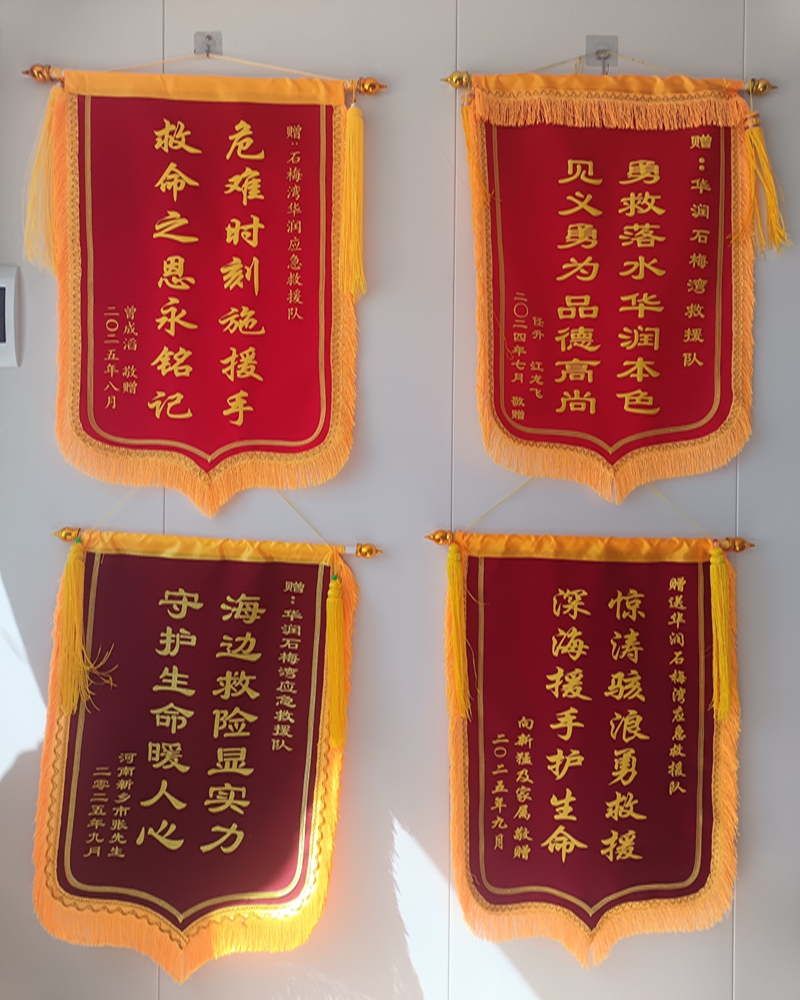 赠：石梅湾华润应急救援队
危难时刻施援手
救命之恩永铭记
曾成滔 敬赠
二〇二五年八月
赠：华润石梅湾救援队
勇救落水华润本色
见义勇为品德高尚
任升 江龙飞
二〇二四年七月 敬赠
赠：华润石梅湾应急救援队
海边救险显实力
守护生命暖人心
河南新乡市张先生
二零二五年九月
赠送华润石梅湾应急救援队
惊涛骇浪勇救援
深海援手护生命
向新猛及家属敬赠
二〇二五年九月